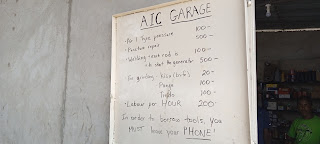 AIC GARAGE
• Per 1 Tyre pressure 100-
• Puncture repair 500-
• Welding - each rod is 100-
to start the generator 300-
• For grinding - kisu (knife) 20-
Panga 100-
100-
• Labour per HOUR 200-
In order to borrow tools, you
MUST leave your PHONE!